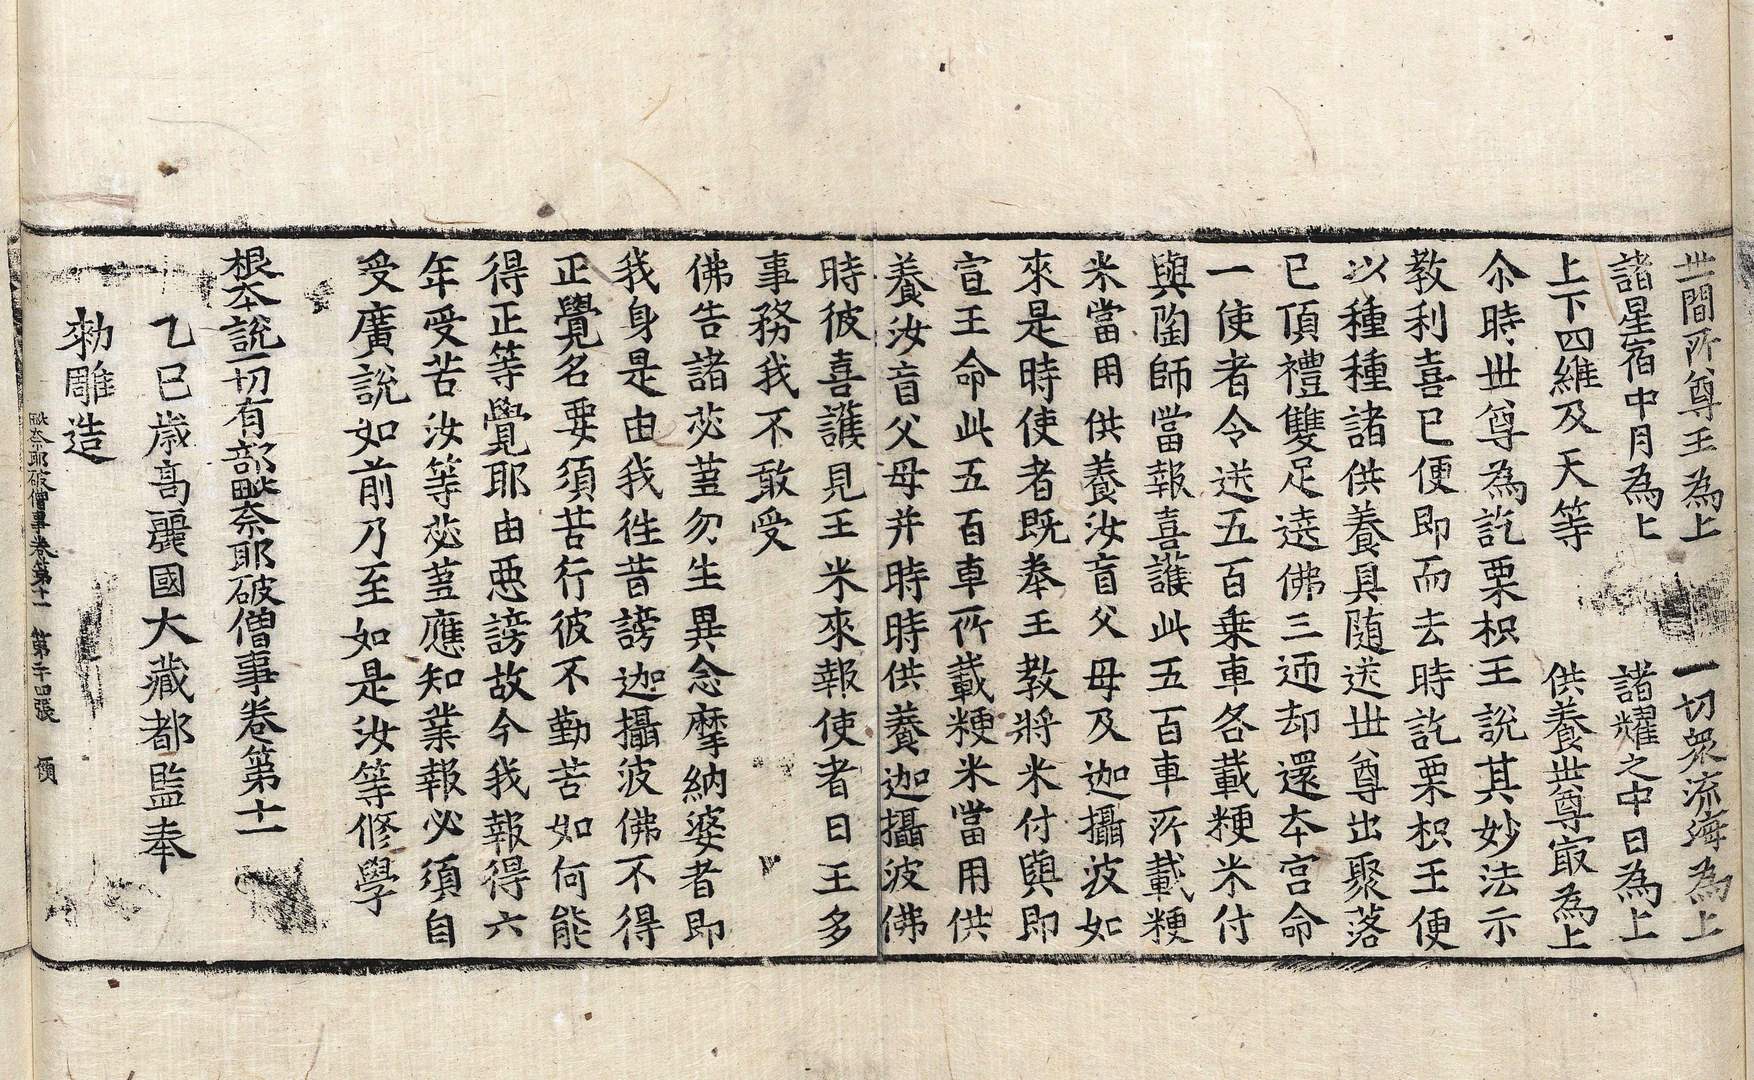 世間所尊王為上　一切衆流海為上
諸星宿中月為上　諸耀之中日為上
上下四維及天等　供養世尊㝡為上
尒時世尊為訖栗枳王說其妙法示
教利喜已便即而去時訖栗枳王便
以種種諸供養具随送世尊出聚落
已頂禮雙足遶佛三迊却還本宮命
一使者令送五百乗車各載粳米付
與陶師當報喜護此五百車所載粳
米當用供養汝盲父母及迦攝波如
來是時使者既奉王教將米付與即
宣王命此五百車所載粳米當用供
養汝盲父母并時時供養迦攝波佛
時彼喜護見王米來報使者曰王多
事務我不敢受
佛告諸苾蒭勿生異念摩納婆者即
我身是由我徃昔謗迦攝波佛不得
正覺名要須苦行彼不勤苦如何能
得正等覺耶由惡謗故今我報得六
年受苦汝等苾蒭應知業報必須自
受廣說如前乃至如是汝等修學
根本說一切有部毗奈耶破僧事卷第十一
乙巳歳高麗國大藏都監奉
勑雕造
毗奈耶破僧事卷第十一　第二十四張　價